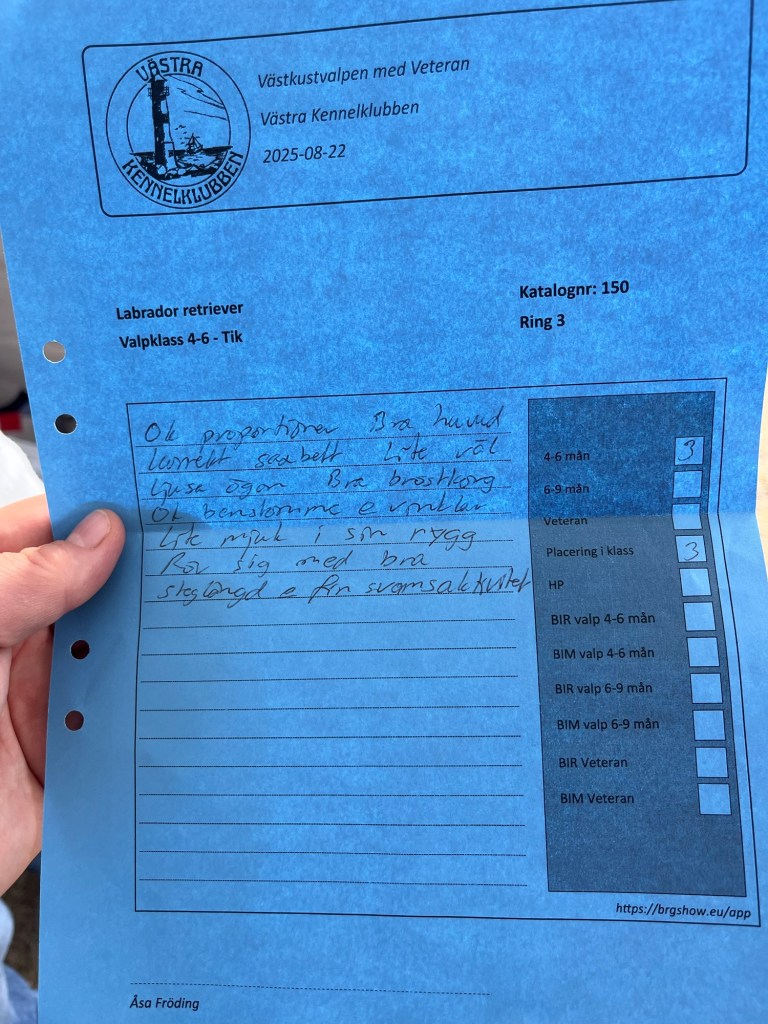 VÄSTRA
KENNELKLUBBEN
Västkustvalpen med Veteran
Västra Kennelklubben
2025-08-22
Labrador retriever
Valpklass 4-6 - Tik
Katalognr: 150
Ring 3
Ok proportioner Bra huvud
korrekt saxbett Lite väl
ljusa ögon Bra bröstkorg
Ok benstomme e vinklar
Lite mjuk i sin rygg
Rör sig med bra
steglängd e fin svansaktivitet
4-6 mån 3
6-9 mån
Veteran
Placering i klass 3
HP
BIR valp 4-6 mån
BIM valp 4-6 mån
BIR valp 6-9 mån
BIM valp 6-9 mån
BIR Veteran
BIM Veteran
https://brgshow.eu/app
Åsa Fröding